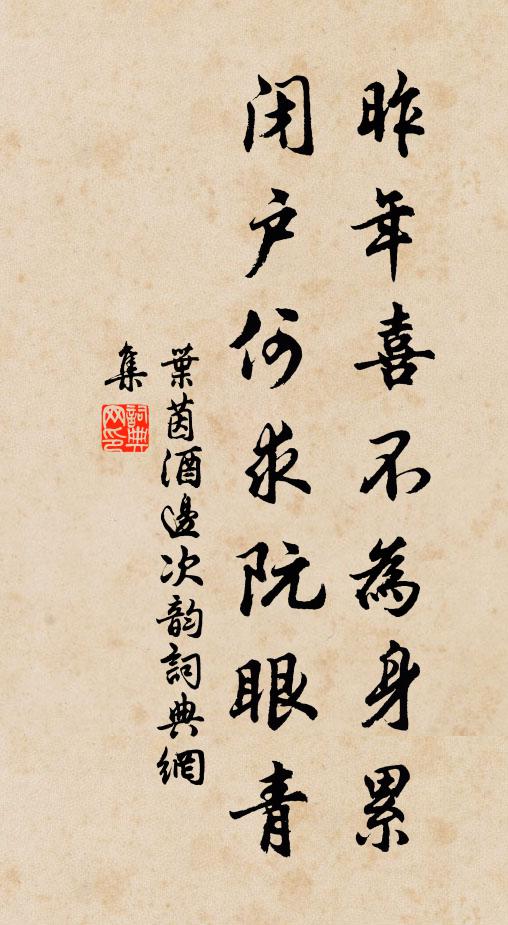 昨年喜不為身累
闭户何求阮眼青
葉茵酒邊次韵詞典網
集
詞典网印